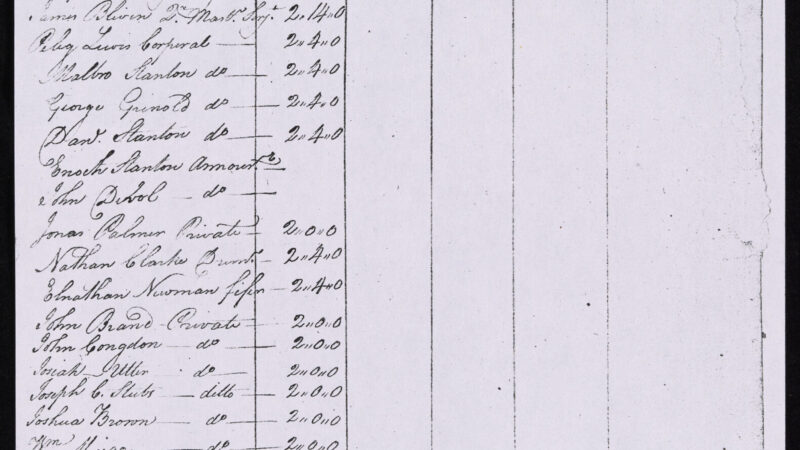 James Oliver Qr. Mastr. Serjt. 2"14"0
Peleg Lewis Corperal — 2"4"0
Malbro Stanton do — 2"4"0
George Grinold do — 2"4"0
Danl. Stanton do — 2"4"0
Enoch Stanton Armourr. —
John Devol — do —
Jonas Palmer Private 2"0"0
Nathan Clarke Drumr. — 2"4"0
Elnathan Newman fifer — 2"4"0
John Brand Private — 2"0"0
John Congdon — do — 2"0"0
Josiah Utter — do — 2"0"0
Joseph C. Stubs — ditto — 2"0"0
Joshua Brown — do — 2"0"0
Wm — do — 2"0"0